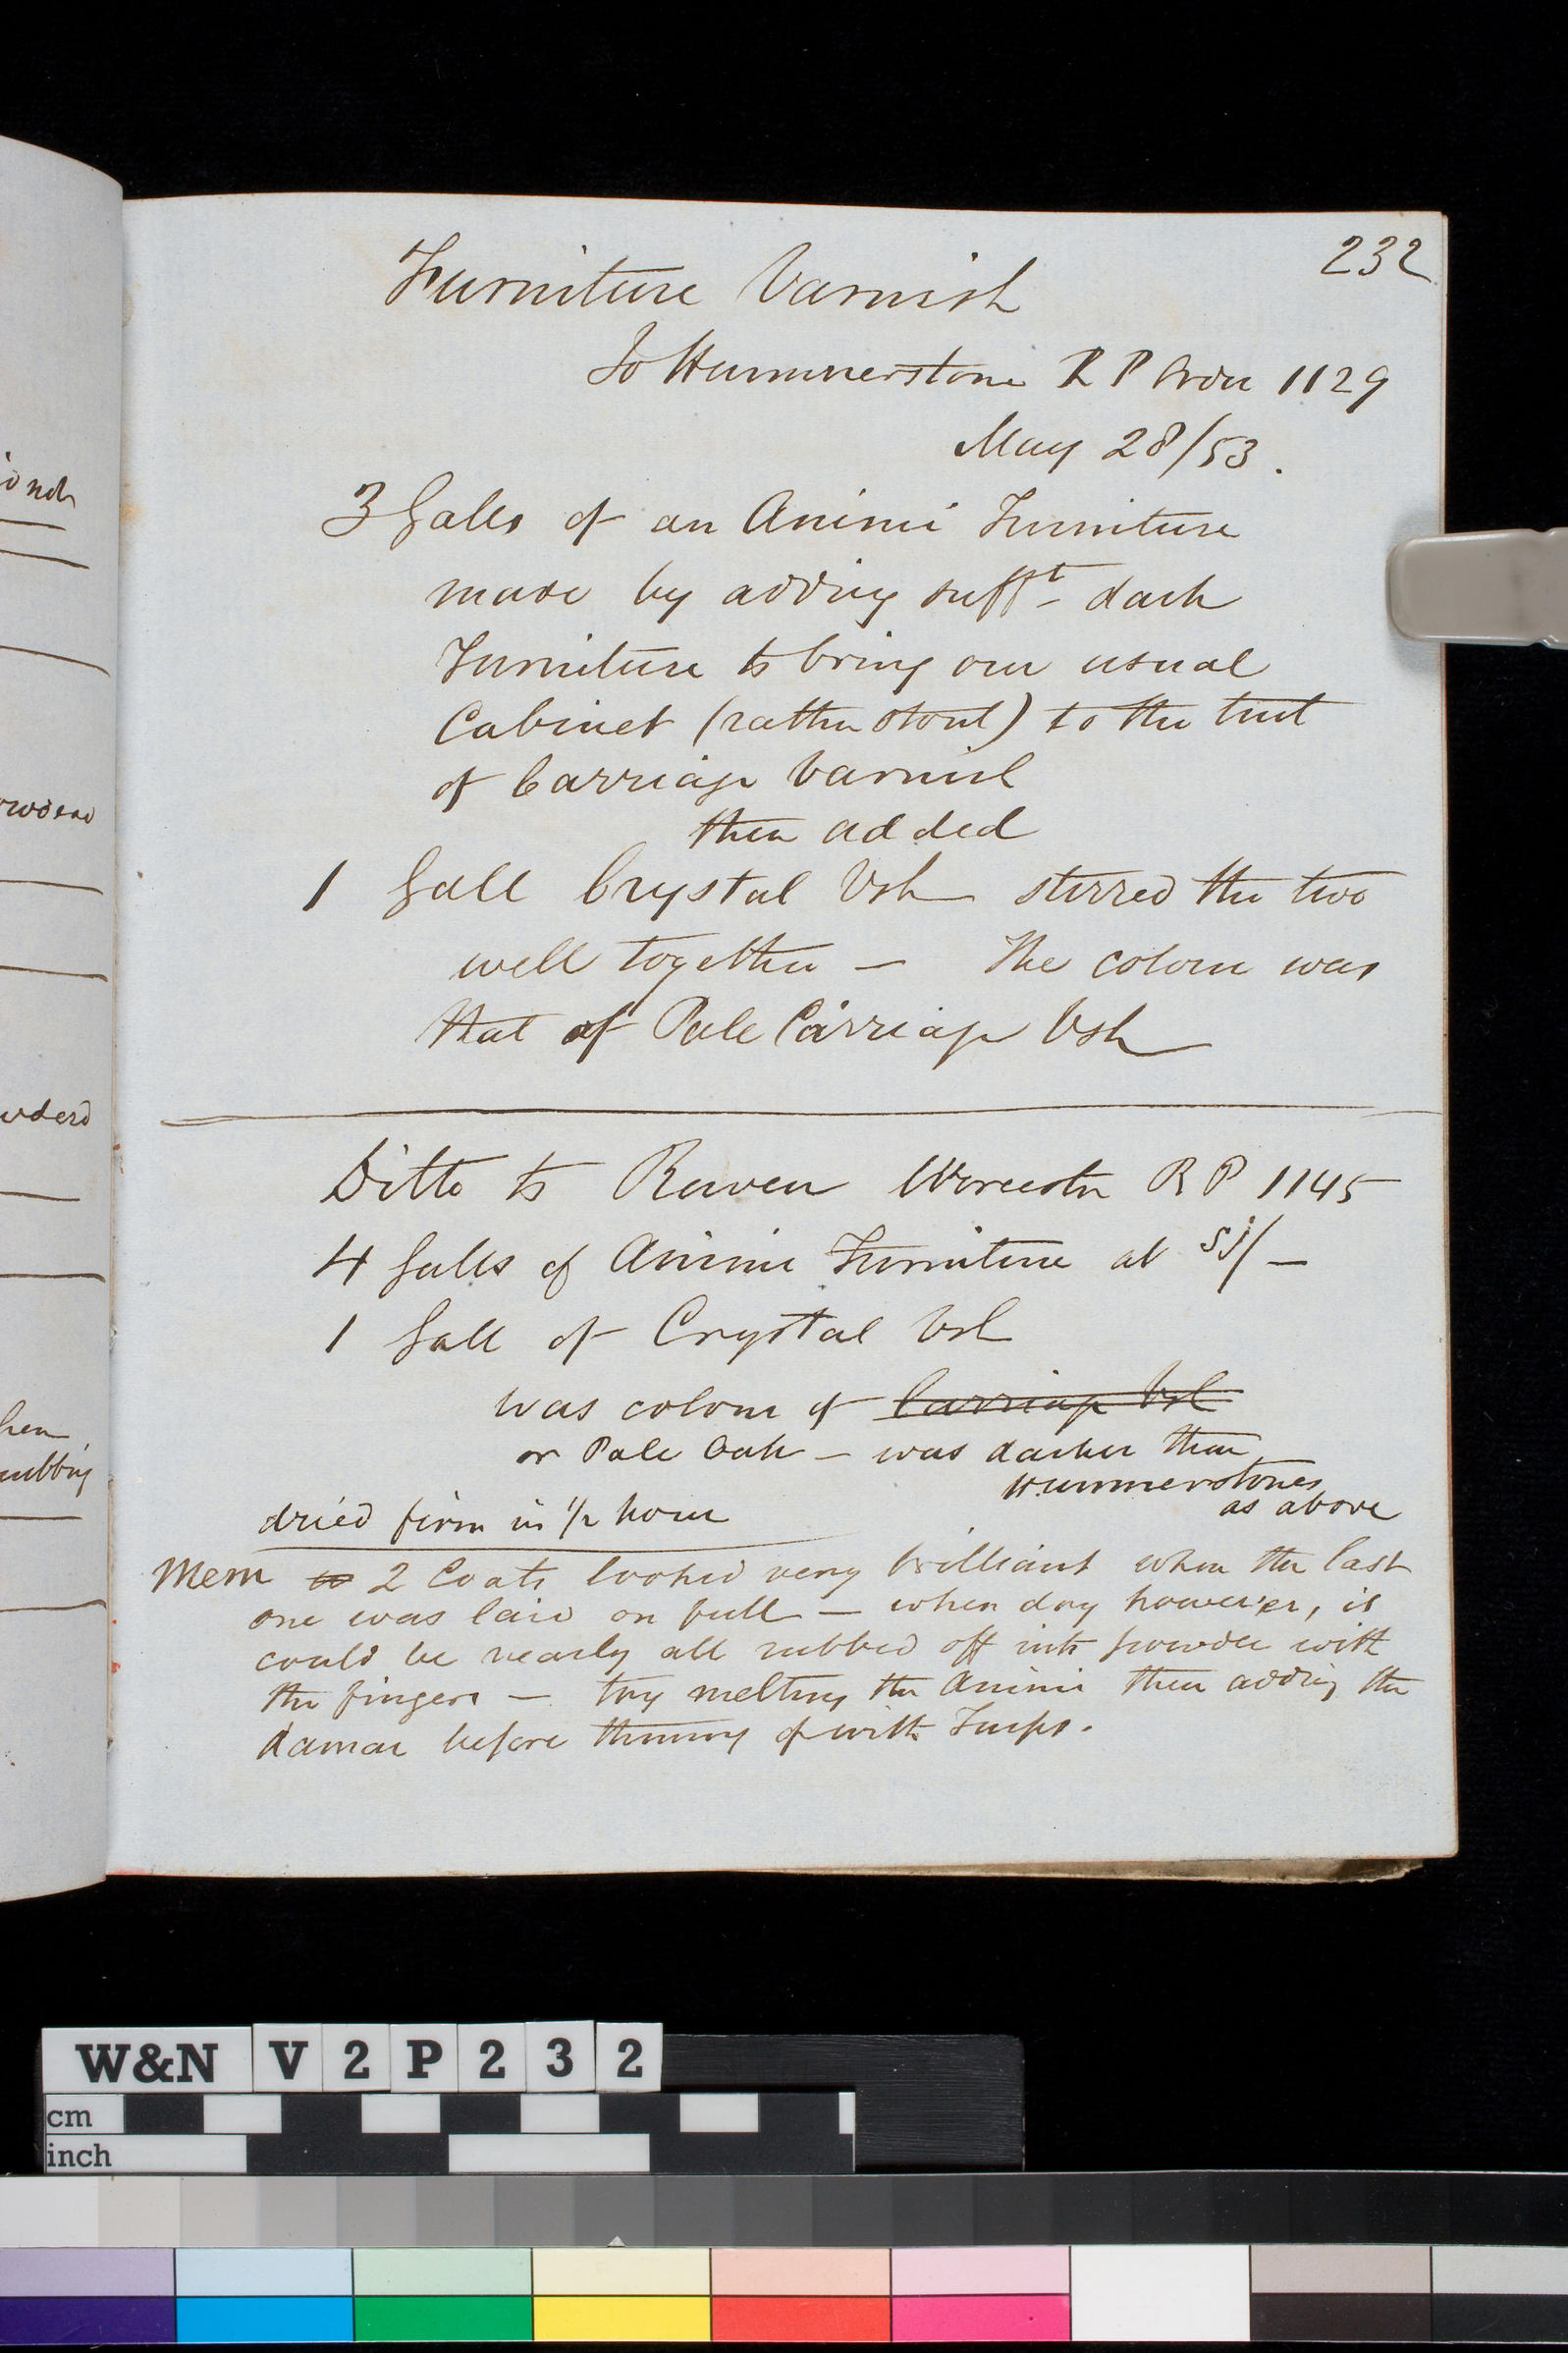 232
Furniture Varnish
To Hummerstone R P Order 1129
May 28/53.
3 Galls of an Animi Furniture
made by adding suff^t dark
Furniture to bring our usual
Cabinet (rather stout) to the tint
of Carriage Varnish
then added
1 Gall Crystal Vsh stirred the two
well together – The colour was
that of Pale Carriage Vsh
Ditto to Rowen Worcester R P 1145
4 Galls of Animi Furniture at
1 Gall of Crystal Vsh
was colour of Carriage Vsh
or Pale Oak – was darker than
Hummerstones
as above
dried firm in 1/2 hour
Mem 2 Coats looked very brilliant when the last
one was laid on full – when dry however, it
could be nearly all rubbed off into powder with
the fingers – try melting the Animi then adding the
damar before thinning of with Turps.
inch
W&N V2P232
cm
inch